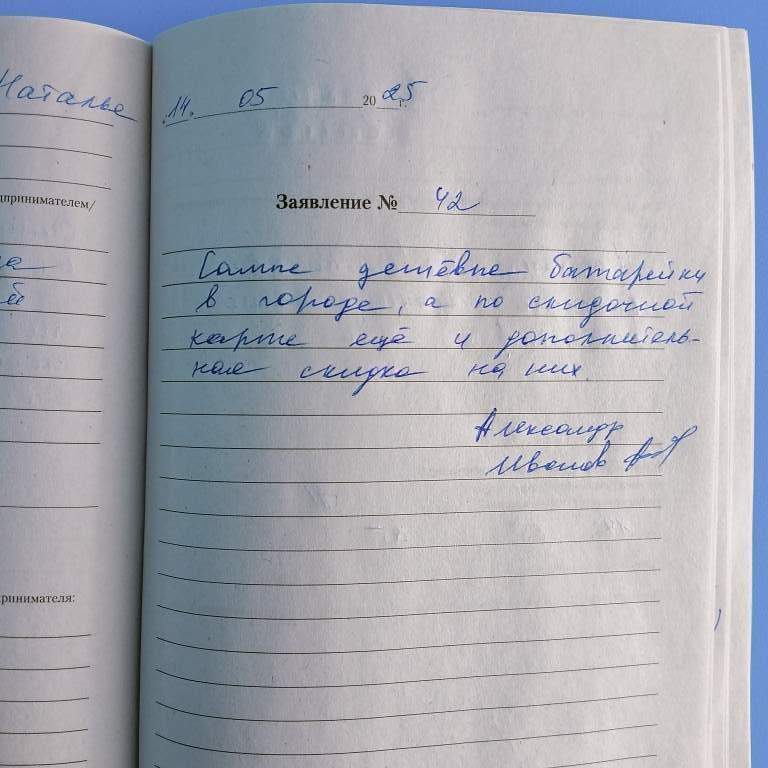 Наталье
дпринимателем/
ей
ринимателя:
14. 05 2025 г.
Заявление № 42
Самые дешёвые батарейки
в городе, а по скидочной
карте ещё и дополнитель-
ная скидка на них.
Александр
Иванов